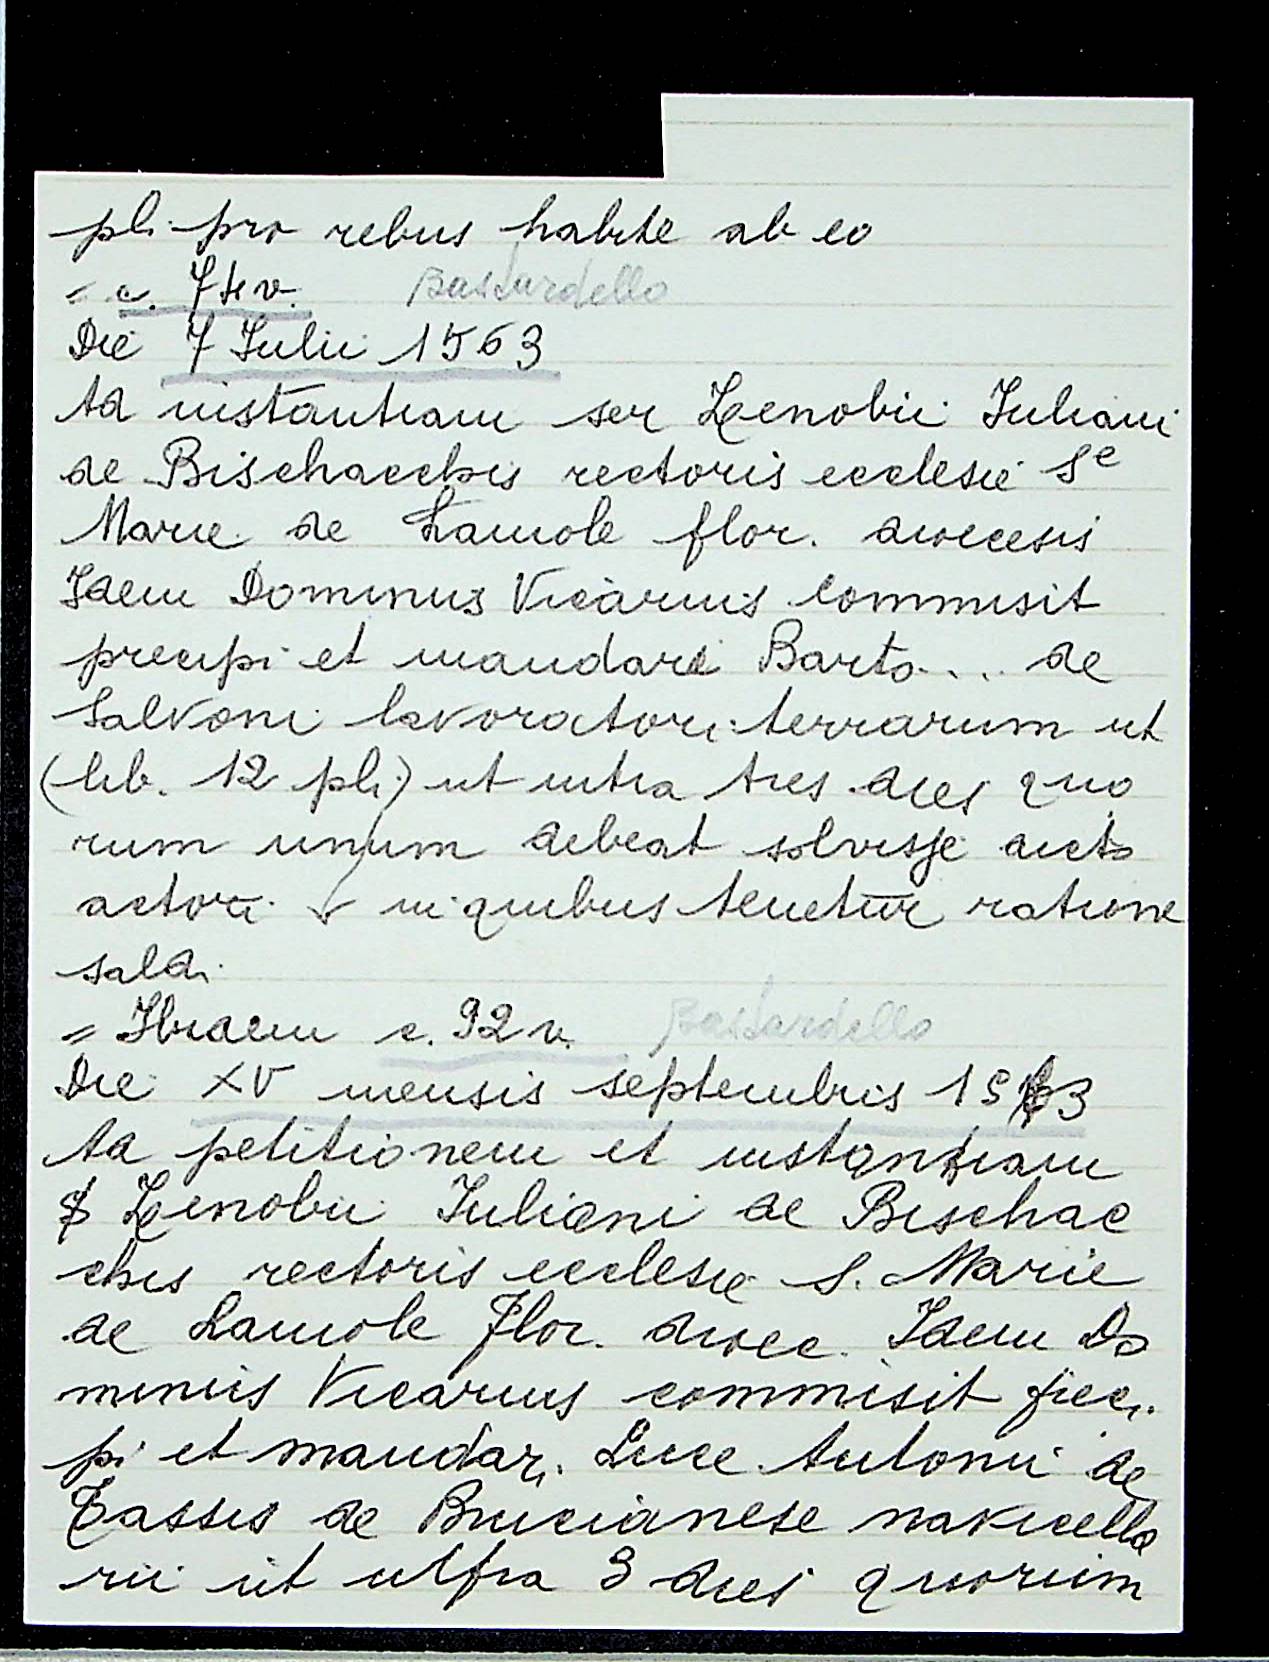 pli pro rebus habite ab eo
= c. 74 v. Bastardello
Die 7 Iulii 1563
Ad instantiam ser Zenobii Iuliani
de Bischacchis rectoris ecclesie Se
Marie de Lamole flor. diocesis
Idem Dominus Vicarius commisit
precipi et mandari Barto... de
Salvoni lavoratori terrarum ut
(lib. 12 pli) ut intra tres dies quo
rum unum debeat solvisse dicto
actori in quibus tenetur ratione
saldi
= Ibidem c. 92 v. Bastardello
Die XV mensis septembris 1563
Ad petitionem et instantiam
S Zenobii Iuliani de Bischac
chis rectoris ecclesie S. Marie
de Lamole Flor. dioec. Idem Do
minus Vicarius commisit preci
pi et mandari Luce Antonii de
Tassis de Brucianese navicella
rii ut ultra 3 dies quorum